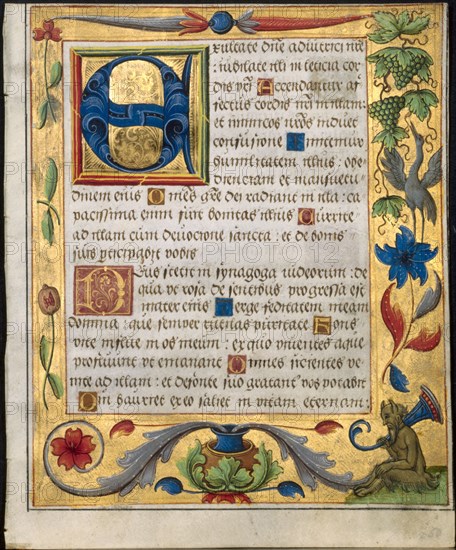 Exultate dn̄e adiutrici nr̄e
: iubilate illi in leticia cor
dis vr̄i Accendantur af
fectus cordis nr̄i in illam:
et inimicos vr̄os induet
confusione Imitemur
humilitatem illius: obe
dienciam et mansuetu
dinem eius Om̄es gr̄e dei radiant in illa: ca
pacissima enim fuit bonitas illius Currite
ad illam cum deuocione sancta: et de bonis
suis participabit vobis
Deus stetit in synagoga iudeorum: de
qua ve rosa de sentibus progressa est
mater eius Terge feditatem meam
domina: que semper rutilas puritate Fons
vite influe in os meum: ex quo viuentes aque
profluunt et emanant Omnes sicientes ve
nite ad illam: et de fonte suo gratanter vos potabit
Qui haurit ex eo saliet in vitam eternam:
PHOTO12